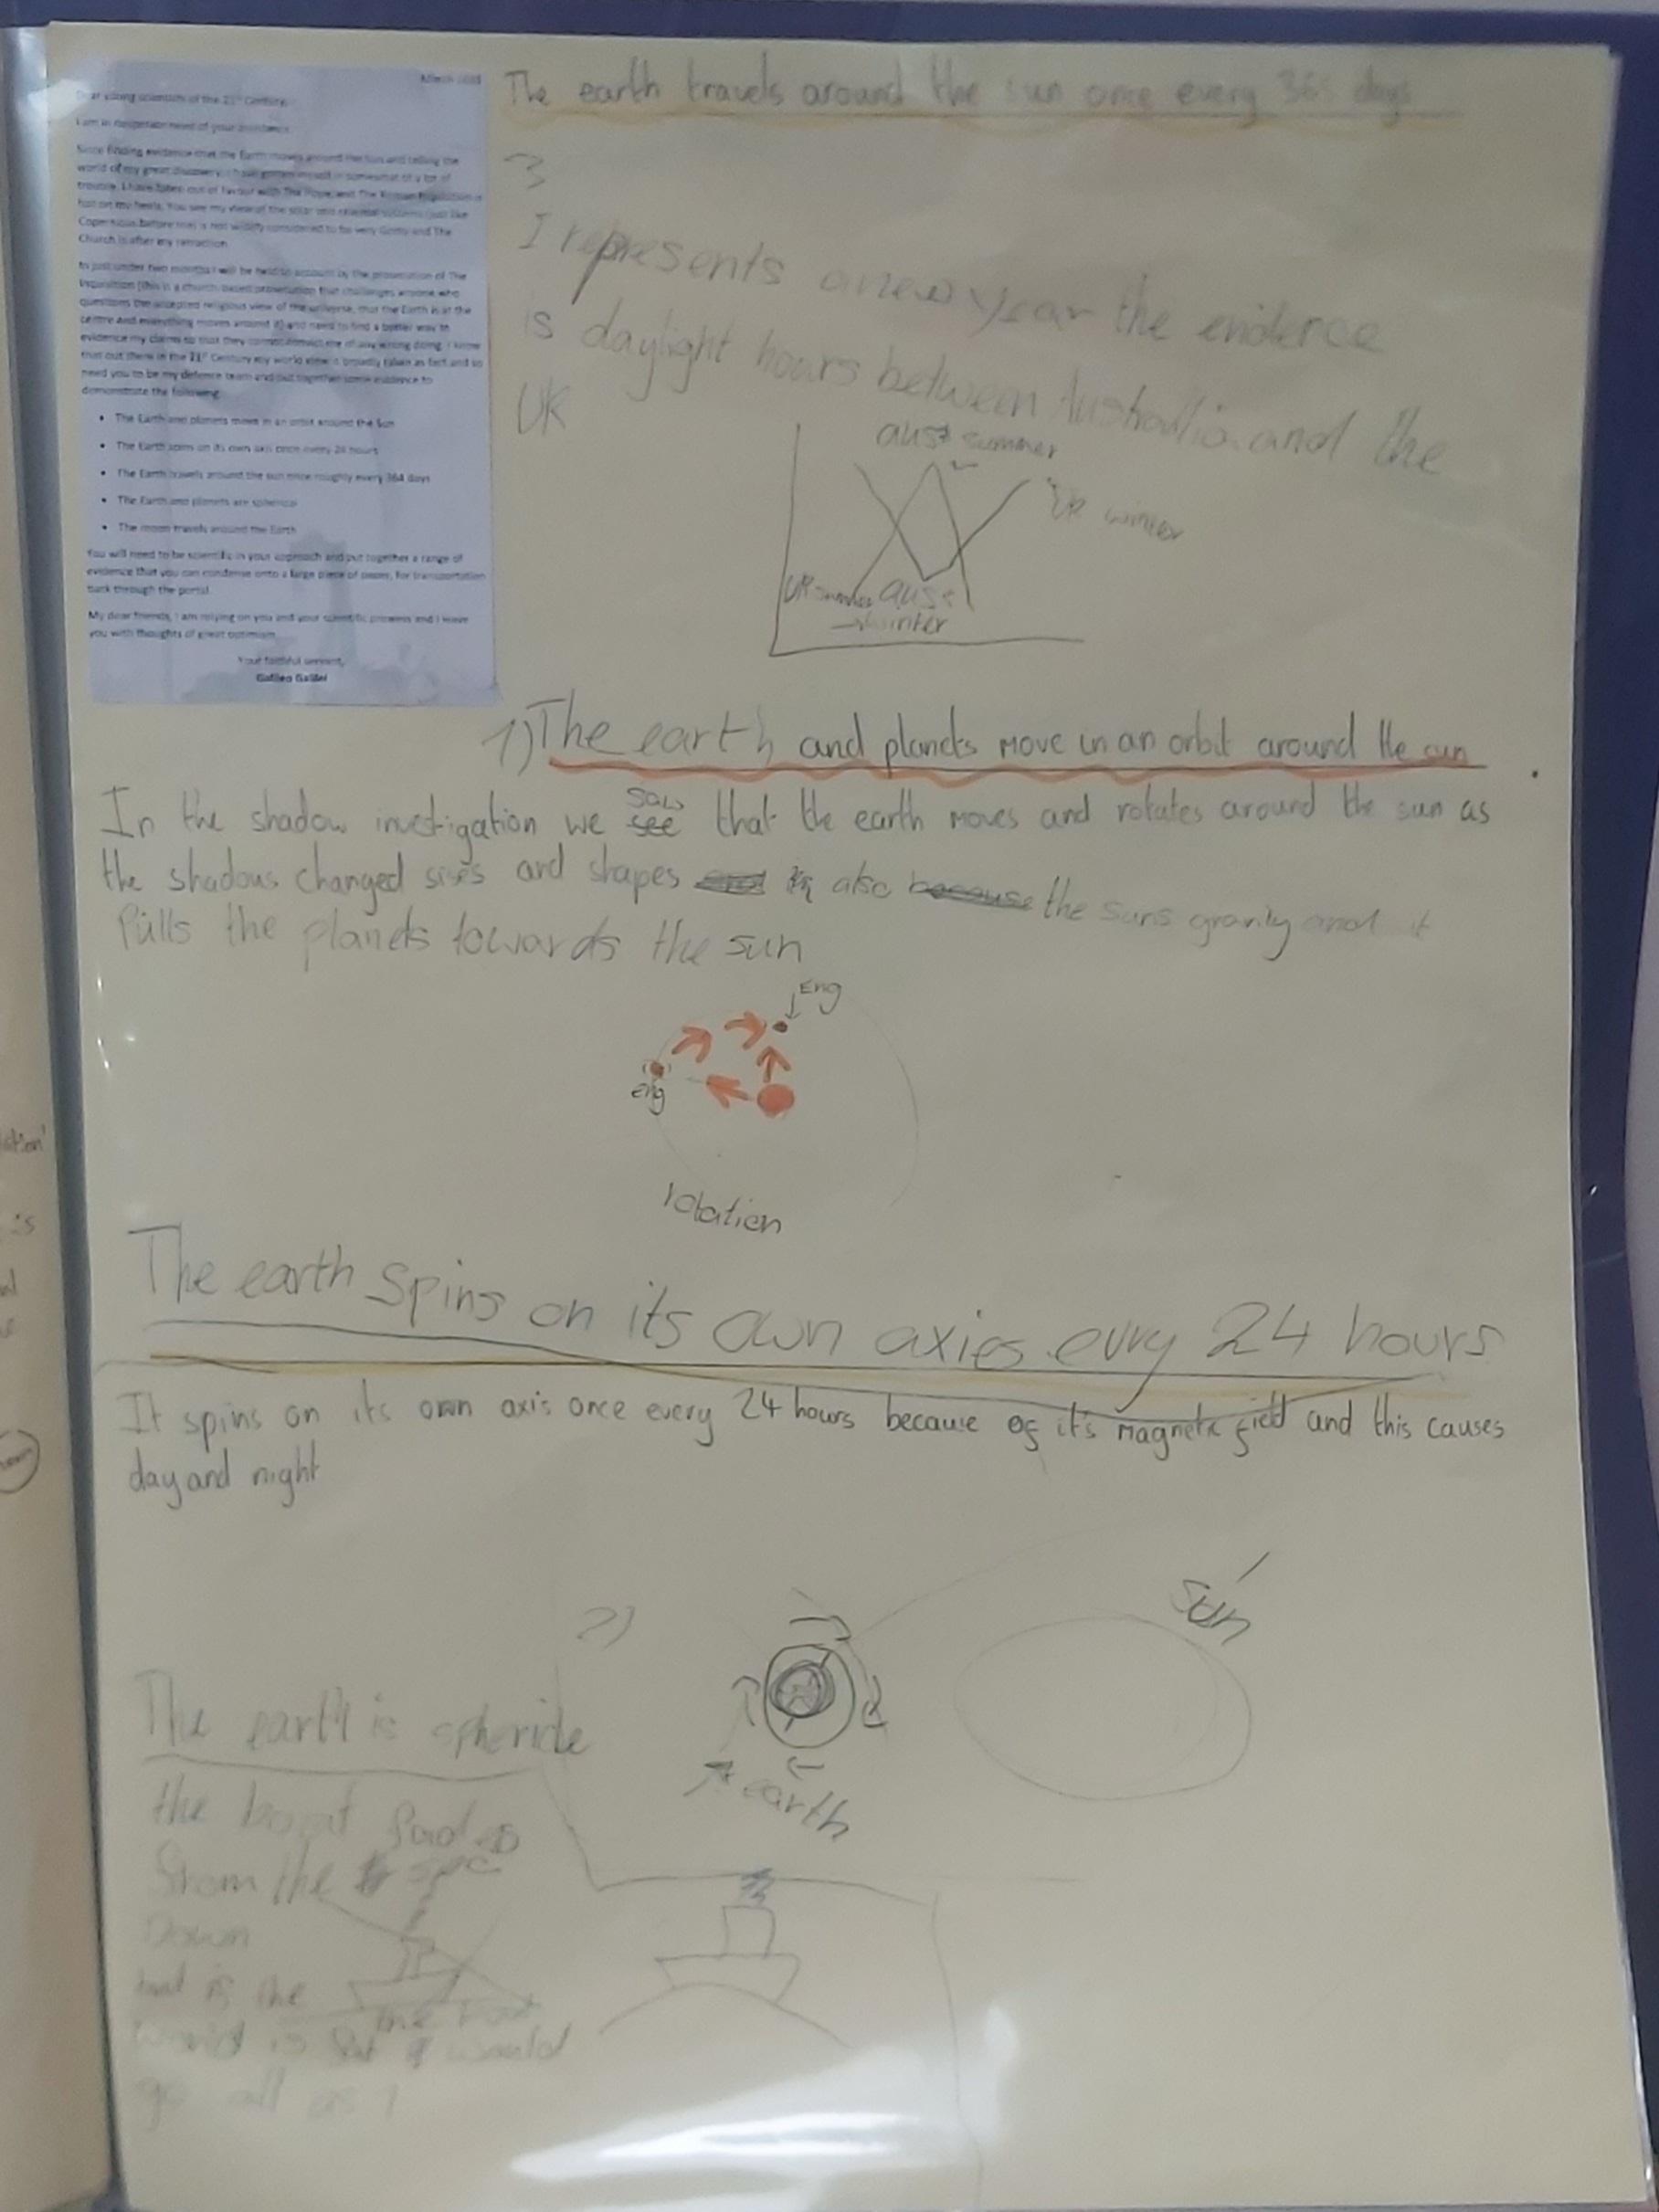 Dear young scientists of the 21st Century,
I am in desperate need of your assistance.
Since finding evidence that the Earth moves around the Sun and telling the
world of my great discovery, I have gotten myself in somewhat of a lot of
trouble. I have fallen out of favour with The Pope and The Roman Inquisition is
hot on my heels. You see my view of the solar and celestial systems (just like
Copernicus before me) is not widely considered to be very Godly and The
Church is after my retraction.
In just under two months I will be held to account by the prosecution of The
Inquisition (this is a church based prosecution that challenges anyone who
questions the accepted religious view of the universe, that the Earth is at the
centre and everything moves around it) and need to find a better way to
evidence my claims so that they cannot convict me of any wrong doing. I know
that out there in the 21st Century my world view is broadly taken as fact and so
need you to be my defence team and put together some evidence to
demonstrate the following:
• The Earth and planets move in an orbit around the Sun
• The Earth spins on its own axis once every 24 hours
• The Earth travels around the sun once roughly every 364 days
• The Earth and planets are spherical
• The moon travels around the Earth
You will need to be scientific in your approach and put together a range of
evidence that you can condense onto a large piece of paper, for transportation
back through the portal.
My dear friends, I am relying on you and your scientific prowess and I leave
you with thoughts of great optimism.
Your faithful servant,
Galileo Galilei
The earth travels around the sun once every 365 days
3
I represents a new year the evidence
is daylight hours between Australia and the
UK
aust summer
UK winter
UK summer aust
winter
1) The earth and planets move in an orbit around the sun
In the shadow investigation we saw see that the earth moves and rotates around the sun as
the shadows changed sizes and shapes also because the suns gravity and it
Pulls the planets towards the sun
Eng
Eng
rotation
The earth Spins on its own axies evry 24 hours
It spins on its own axis once every 24 hours because of it's magnetic field and this causes
day and night
2)
Sun
earth
The earth is
the boat fades
from the
Down
is the
would
go all as 1